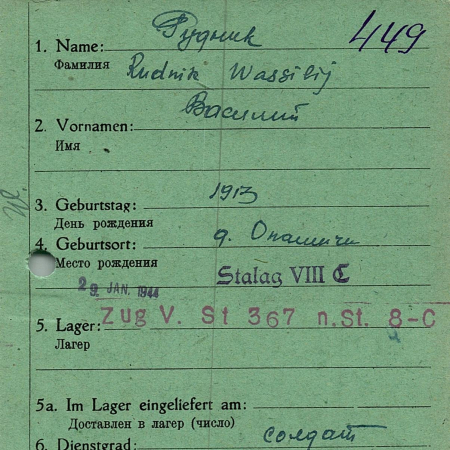 449
Рудник
1. Name:
Фамилия
Rudnik Wassilij
Василий
2. Vornamen:
Имя
3. Geburtstag: 1913
День рождения
4. Geburtsort: д.
Место рождения
29. JAN. 1944 Stalag VIII C
Zug V. St 367 n.St. 8-C
5. Lager:
Лагер
5a. Im Lager eingeliefert am:
Доставлен в лагер (число)
6. Dienstgrad: солдат